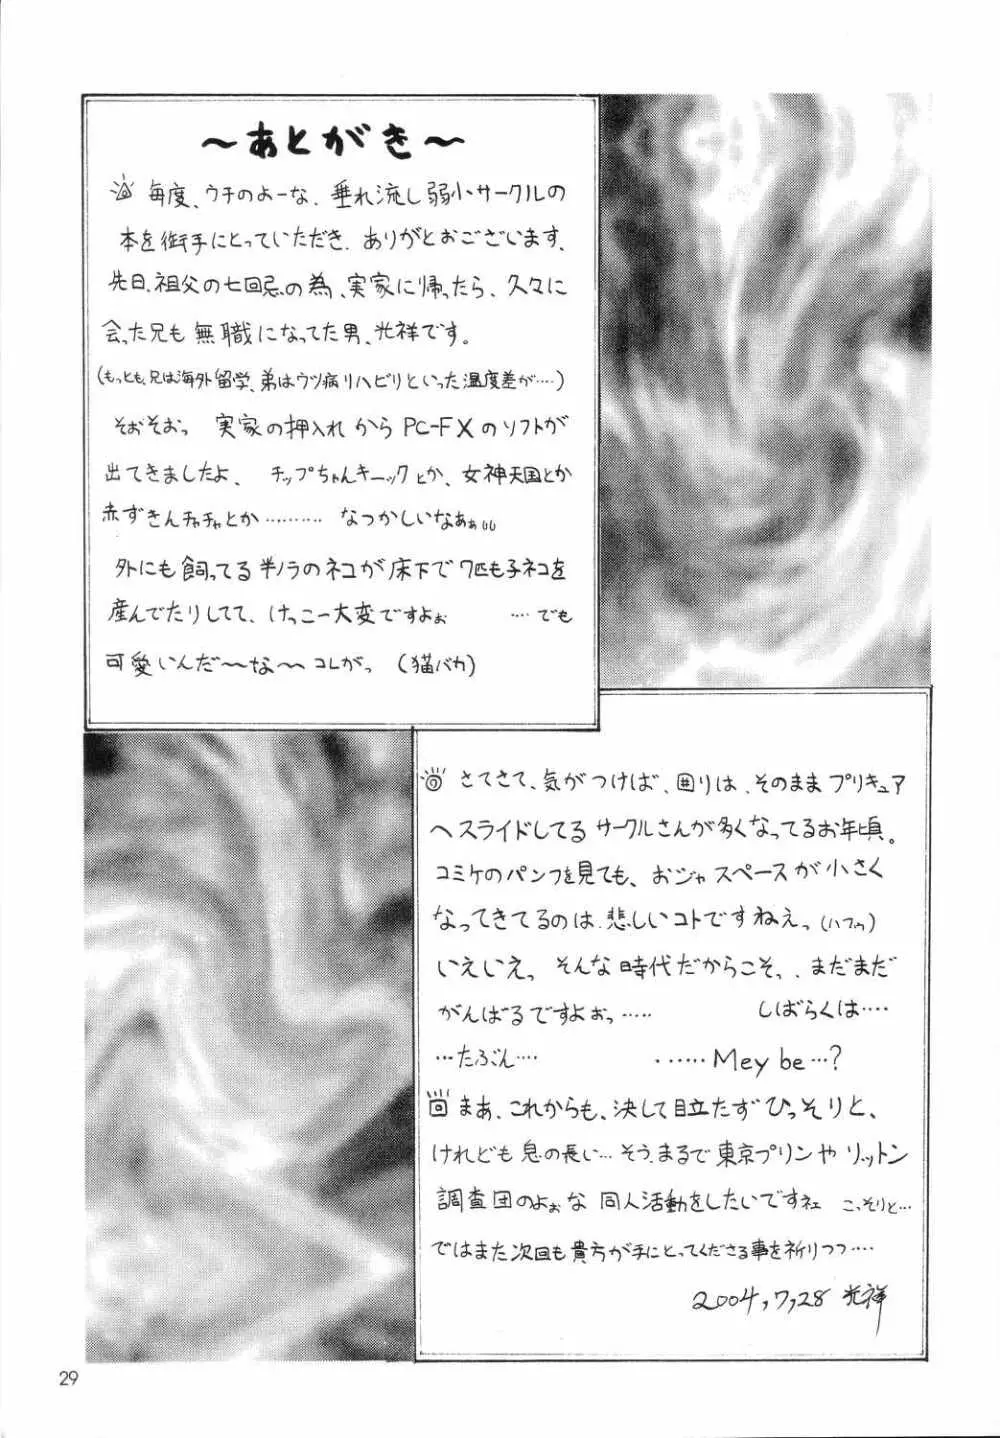 ～あとがき～
毎度、ウチのよーな、垂れ流し弱小サークルの
本を御手にとっていただき、ありがとおございます、
先日、祖父の七回忌の為、実家に帰ったら、久々に
会った兄も無職になってた男、光祥です。
(もっとも、兄は海外留学、弟はウツ病リハビリといった温度差が‥‥)
そおそおっ 実家の押入れからPC-FXのソフトが
出てきましたよ、 チップちゃんキーックとか、女神天国とか
赤ずきんチャチャとか………… なつかしいなあぁ
外にも飼ってる半ノラのネコが床下で7匹も子ネコを
産んでたりしてて、けっこー大変ですよぉ ‥‥でも
可愛いんだ～な～コレがっ (猫バカ)
さてさて、気がつけば、囲りは、そのままプリキュア
へスライドしてるサークルさんが多くなってるお年頃。
コミケのパンフを見ても、おジャスペースが小さく
なってきてるのは、悲しいコトですねえっ(ハフゥ)
いえいえっ そんな時代だからこそっ、まだまだ
がんばるですよぉっ‥‥‥ しばらくは‥‥
‥‥たぶん‥‥ ‥‥‥Mey be‥‥?
まあ、これからも、決して目立たずひっそりと、
けれども息の長い‥‥そう、まるで東京プリンやリットン
調査団のよぉな同人活動をしたいですネェ こっそりと‥‥
ではまた次回も貴方が手にとってくださる事を祈りつつ‥‥
2004,7,28 光祥
29